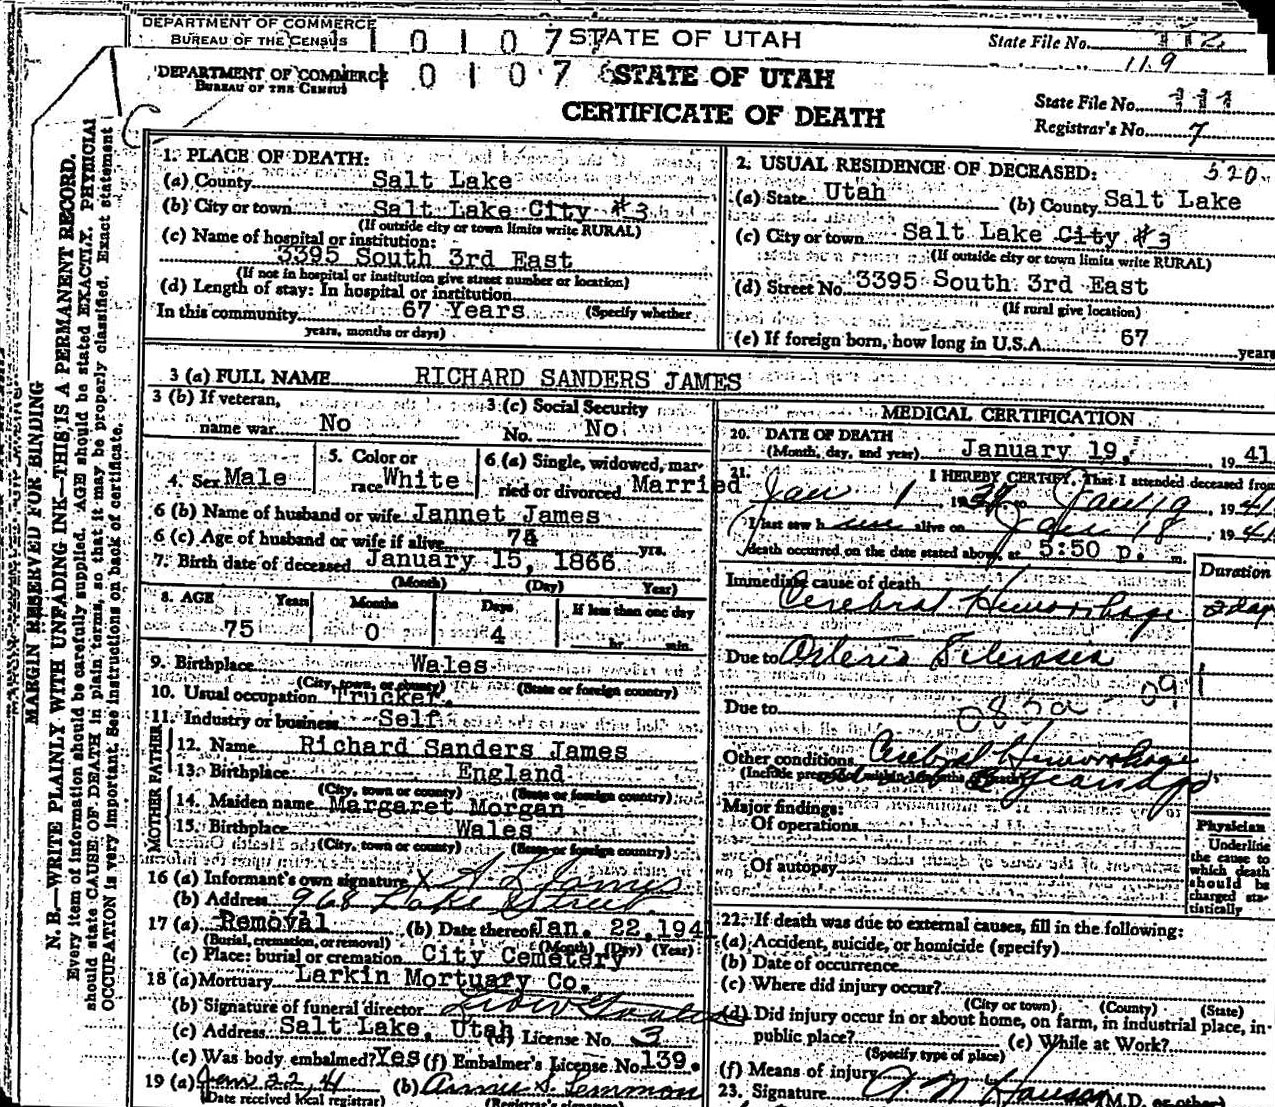 DEPARTMENT OF COMMERCE
BUREAU OF THE CENSUS
1 0 1 0 7
STATE OF UTAH
State File No.
119
DEPARTMENT OF COMMERCE
BUREAU OF THE CENSUS
1 0 1 0 7 6
STATE OF UTAH
CERTIFICATE OF DEATH
State File No. 111
Registrar's No. 7
MARGIN RESERVED FOR BINDING
N. B.—WRITE PLAINLY WITH UNFADING INK—THIS IS A PERMANENT RECORD.
Every item of information should be carefully supplied. AGE should be stated EXACTLY. PHYSICIAN
should state CAUSE OF DEATH in plain terms, so that it may be properly classified. Exact statement
OCCUPATION is very important. See instructions on back of certificate.
1. PLACE OF DEATH:
(a) County Salt Lake
(b) City or town Salt Lake City #3
(If outside city or town limits write RURAL)
(c) Name of hospital or institution:
3395 South 3rd East
(If not in hospital or institution give street number or location)
(d) Length of stay: In hospital or institution
In this community 67 Years (Specify whether
years, months or days)
2. USUAL RESIDENCE OF DECEASED: 520
(a) State Utah (b) County Salt Lake
(c) City or town Salt Lake City #3
(If outside city or town limits write RURAL)
(d) Street No. 3395 South 3rd East
(If rural give location)
(e) If foreign born, how long in U.S.A. 67 years
3 (a) FULL NAME RICHARD SANDERS JAMES
3 (b) If veteran, name war No
3 (c) Social Security No. No
4. Sex Male
5. Color or race White
6 (a) Single, widowed, married or divorced Married
6 (b) Name of husband or wife Jannet James
6 (c) Age of husband or wife if alive yrs.
7. Birth date of deceased January 15, 1866
(Month) (Day) Year)
8. AGE Years Months Days If less than one day
75 0 4 hr. min.
9. Birthplace Wales
(City, town, or county) (State or foreign country)
10. Usual occupation Trucker.
11. Industry or business Self
FATHER
12. Name Richard Sanders James
13. Birthplace England
(City, town or county) (State or foreign country)
MOTHER
14. Maiden name Margaret Morgan
15. Birthplace Wales
(City, town or county) (State or foreign country)
16 (a) Informant's own signature X A L James
(b) Address 968 Lake Street
17 (a) Removal (b) Date thereof Jan. 22, 1941
(Burial, cremation, or removal) (Month) (Day) (Year)
(c) Place: burial or cremation City Cemetery
18 (a) Mortuary Larkin Mortuary Co.
(b) Signature of funeral director
(c) Address Salt Lake, Utah (d) License No. 3
(e) Was body embalmed? Yes (f) Embalmer's License No. 139.
19 (a) Jan 22, 41 (b) S. Lemmon
(Date received local registrar) (Registrar's signature)
MEDICAL CERTIFICATION
20. DATE OF DEATH
(Month, day, and year) January 19, 19 41
21. I HEREBY CERTIFY, That I attended deceased from
Jan 1 19 39 Jan 19, 19 41
I last saw h im alive on Jan 18, 19 41
death occurred on the date stated above, at 5:50 p. m.
Duration
Immediate cause of death
Cerebral Hemorrhage 2 days
Due to Arterio Sclerosis
Due to 083a 09
Other conditions Cerebral Hemorrhage
(Include pregnancy within 3 months of death) years ago
Major findings:
Of operations
Of autopsy
Physician
Underline
the cause to
which death
should be
charged sta-
tistically
22. If death was due to external causes, fill in the following:
(a) Accident, suicide, or homicide (specify)
(b) Date of occurrence
(c) Where did injury occur?
(City or town) (County) (State)
(d) Did injury occur in or about home, on farm, in industrial place, in
public place? (e) While at Work?
(Specify type of place)
(f) Means of injury
23. Signature (M.D. or other)